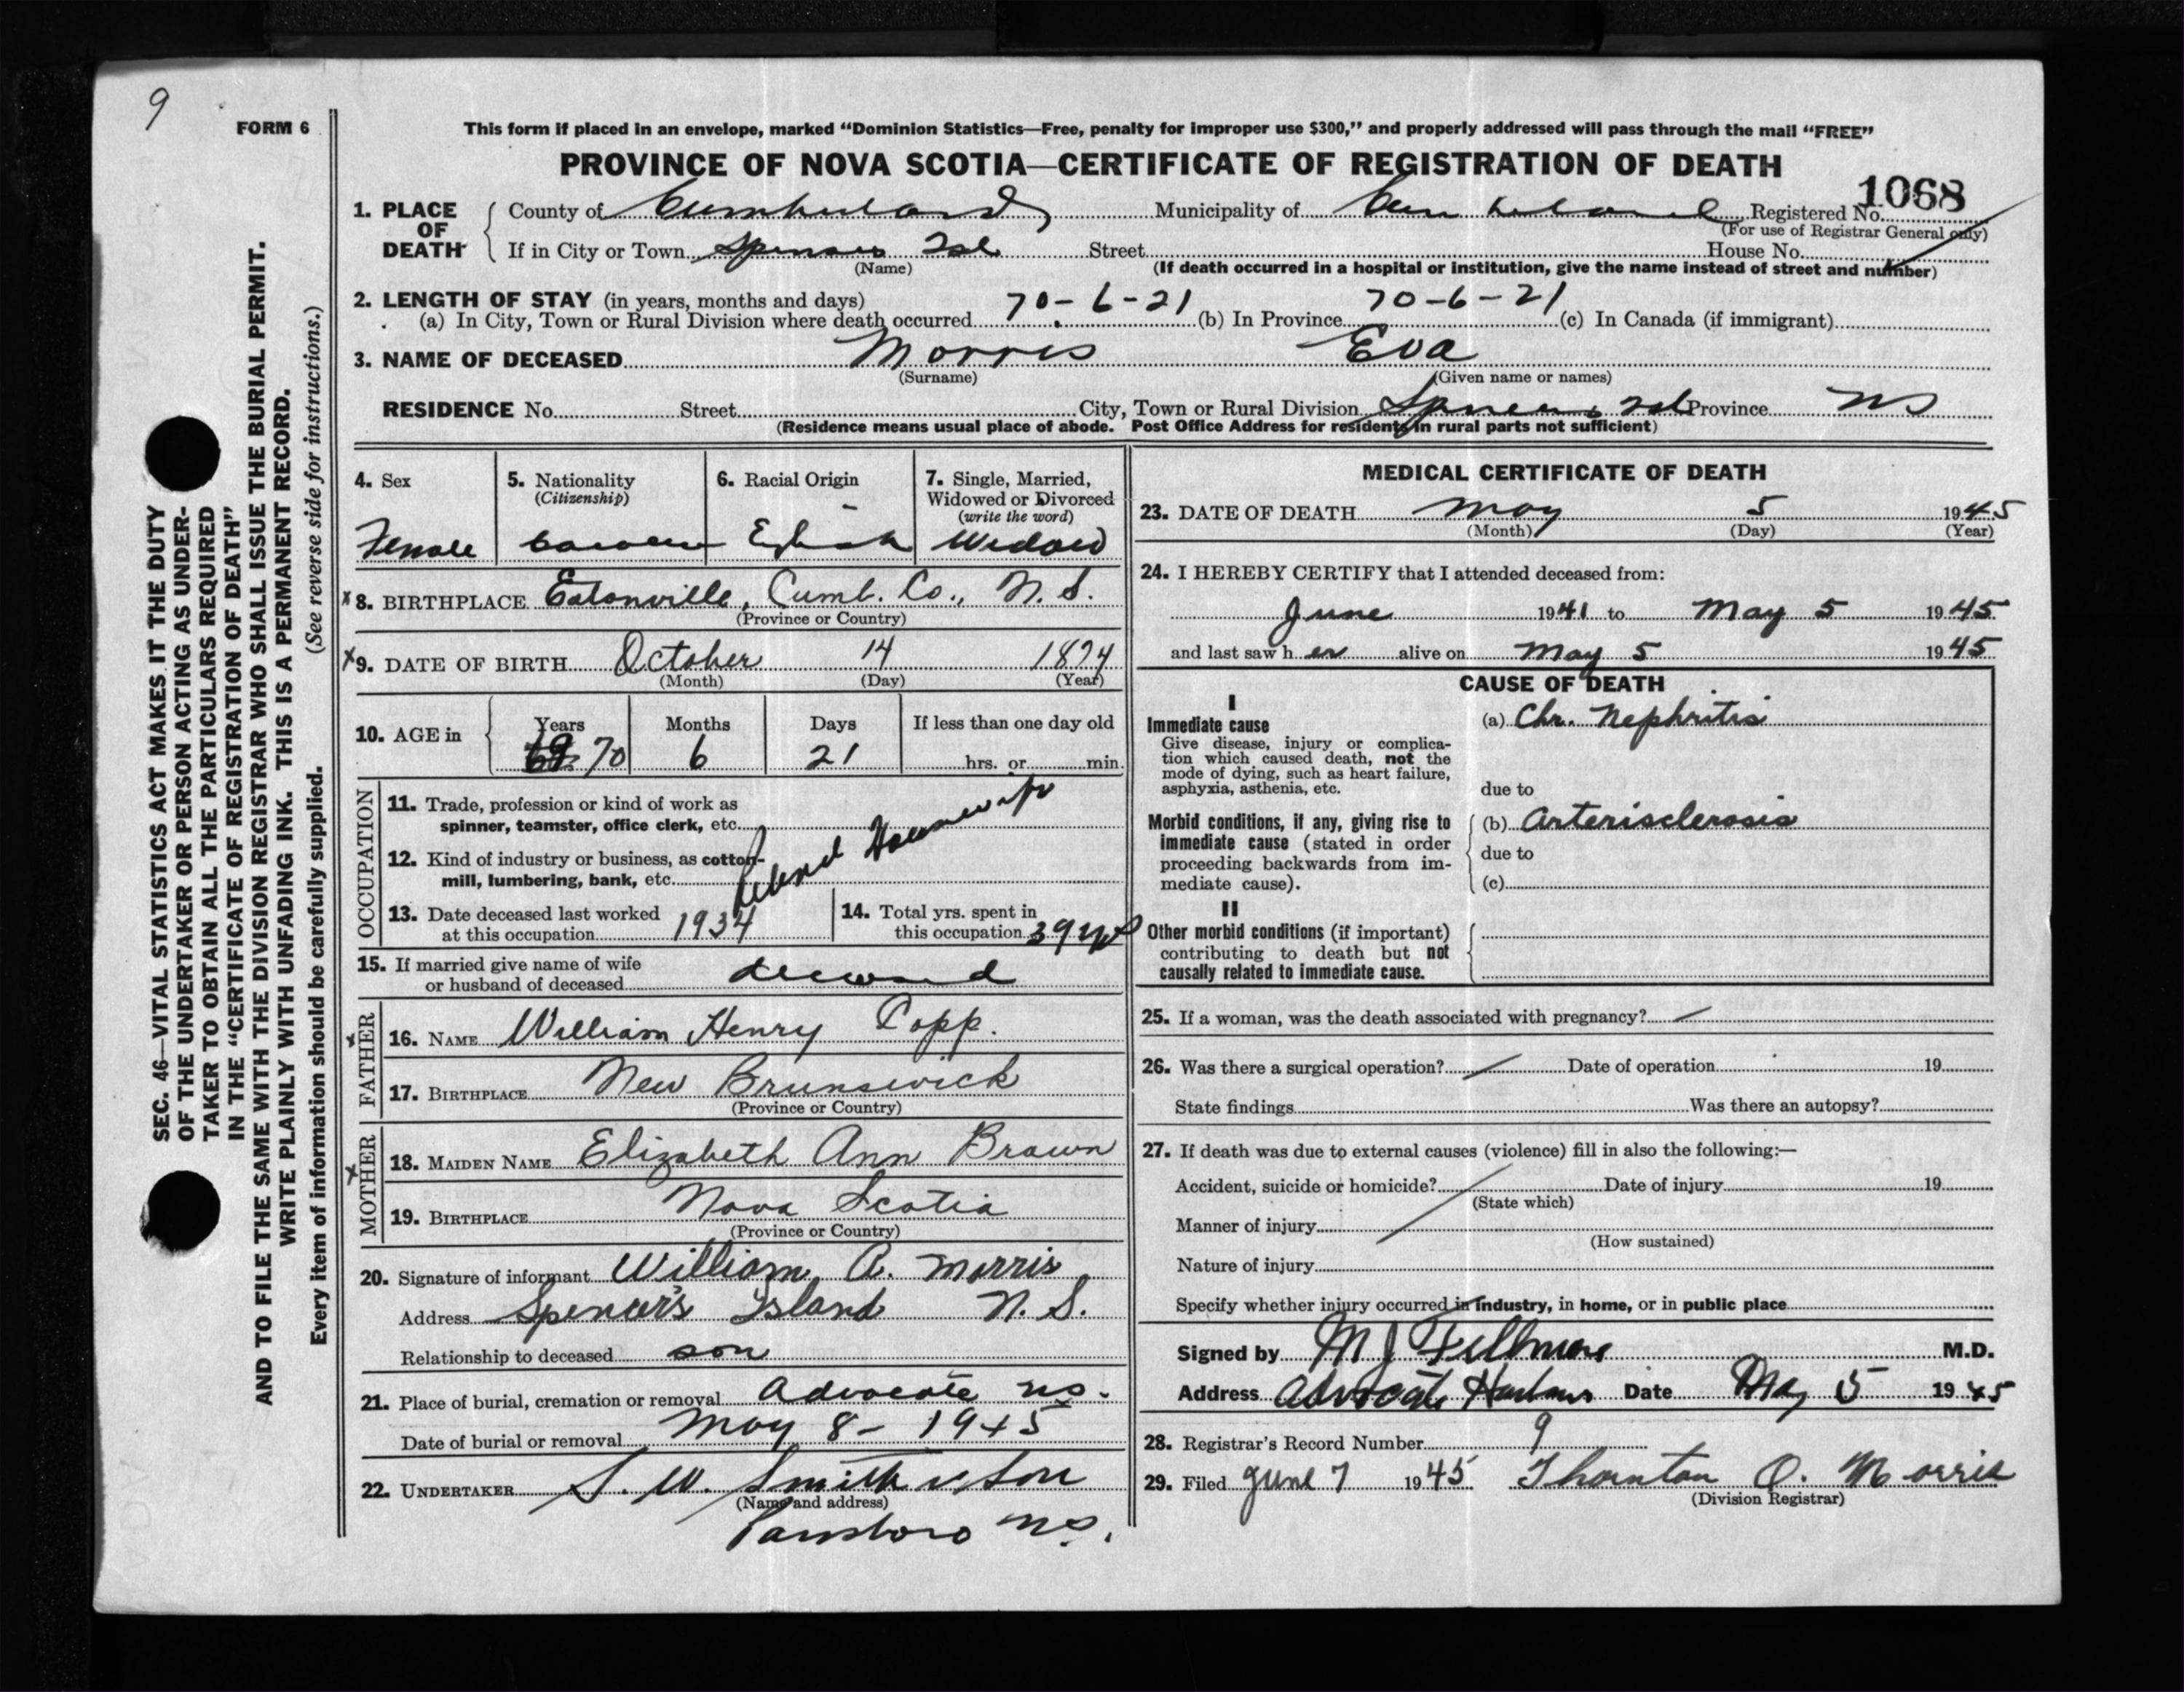 9
FORM 6
This form if placed in an envelope, marked “Dominion Statistics—Free, penalty for improper use $300,” and properly addressed will pass through the mail “FREE”
PROVINCE OF NOVA SCOTIA—CERTIFICATE OF REGISTRATION OF DEATH
1068
1. PLACE OF DEATH County of Cumberland Municipality of Cumberland Registered No.
(For use of Registrar General only)
If in City or Town Spencers Isl Street House No.
(Name) (If death occurred in a hospital or institution, give the name instead of street and number)
2. LENGTH OF STAY (in years, months and days)
(a) In City, Town or Rural Division where death occurred 70-6-21 (b) In Province 70-6-21 (c) In Canada (if immigrant)
3. NAME OF DECEASED Morris Eva
(Surname) (Given name or names)
RESIDENCE No. Street City, Town or Rural Division Spencers Isl Province NS
(Residence means usual place of abode. Post Office Address for residents in rural parts not sufficient)
4. Sex Female
5. Nationality (Citizenship)
6. Racial Origin English
7. Single, Married, Widowed or Divorced (write the word) Widow
x 8. BIRTHPLACE Eatonville, Cumb. Co., N. S.
(Province or Country)
x 9. DATE OF BIRTH October 14 1874
(Month) (Day) (Year)
10. AGE in Years 69 70 Months 6 Days 21 If less than one day old hrs. or min.
OCCUPATION
11. Trade, profession or kind of work as
spinner, teamster, office clerk, etc.
Retired Housewife
12. Kind of industry or business, as cotton-
mill, lumbering, bank, etc.
13. Date deceased last worked
at this occupation 1934
14. Total yrs. spent in
this occupation 39 yrs
15. If married give name of wife
or husband of deceased deceased
FATHER x
16. NAME William Henry Copp.
17. BIRTHPLACE New Brunswick
(Province or Country)
MOTHER x
18. MAIDEN NAME Elizabeth Ann Brown
19. BIRTHPLACE Nova Scotia
(Province or Country)
20. Signature of informant William A. Morris
Address Spencer's Island N. S.
Relationship to deceased son
21. Place of burial, cremation or removal Advocate NS.
Date of burial or removal May 8 - 1945
22. UNDERTAKER S. W. Smith & Son
(Name and address)
Parrsboro NS.
MEDICAL CERTIFICATE OF DEATH
23. DATE OF DEATH May 5 1945
(Month) (Day) (Year)
24. I HEREBY CERTIFY that I attended deceased from:
June 1941 to May 5 1945
and last saw her alive on May 5 1945
CAUSE OF DEATH
I
Immediate cause
Give disease, injury or complica-
tion which caused death, not the
mode of dying, such as heart failure,
asphyxia, asthenia, etc.
(a) Chr. Nephritis
due to
Morbid conditions, if any, giving rise to
immediate cause (stated in order
proceeding backwards from im-
mediate cause).
(b) Arterisclerosis
due to
(c)
II
Other morbid conditions (if important)
contributing to death but not
causally related to immediate cause.
25. If a woman, was the death associated with pregnancy?
26. Was there a surgical operation? Date of operation 19
State findings Was there an autopsy?
27. If death was due to external causes (violence) fill in also the following:—
Accident, suicide or homicide? Date of injury 19
(State which)
Manner of injury
(How sustained)
Nature of injury
Specify whether injury occurred in industry, in home, or in public place
Signed by M J Fillmore M.D.
Address Advocate Harbour Date May 5 1945
28. Registrar's Record Number 9
29. Filed June 7 1945 Thornton O. Morris
(Division Registrar)
SEC. 46—VITAL STATISTICS ACT MAKES IT THE DUTY
OF THE UNDERTAKER OR PERSON ACTING AS UNDER-
TAKER TO OBTAIN ALL THE PARTICULARS REQUIRED
IN THE “CERTIFICATE OF REGISTRATION OF DEATH”
AND TO FILE THE SAME WITH THE DIVISION REGISTRAR WHO SHALL ISSUE THE BURIAL PERMIT.
WRITE PLAINLY WITH UNFADING INK. THIS IS A PERMANENT RECORD.
Every item of information should be carefully supplied. (See reverse side for instructions.)